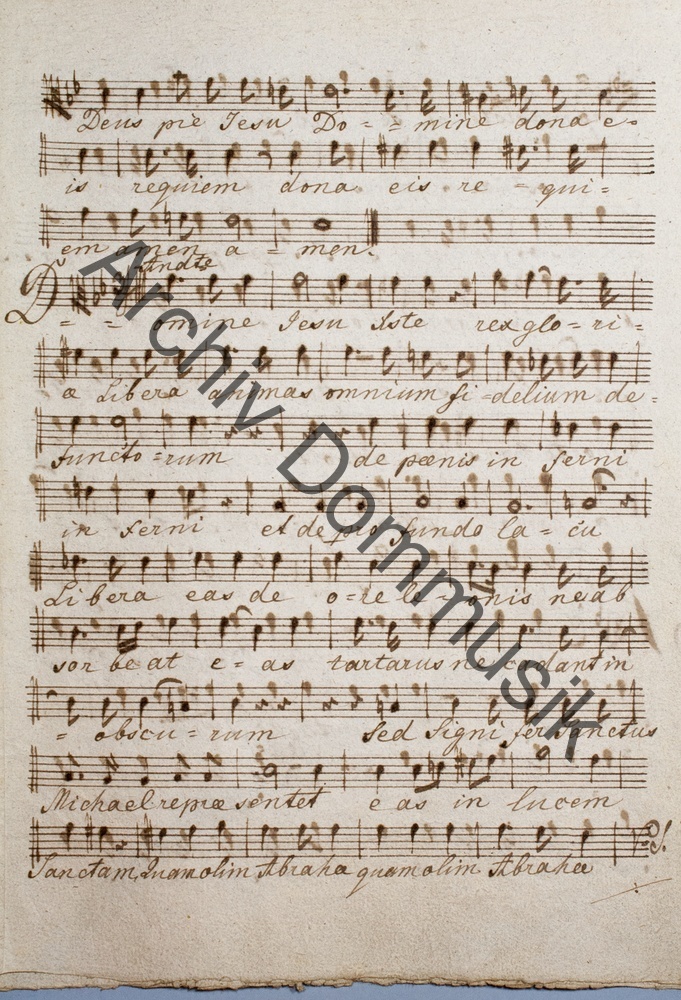 Deus pie Jesu Do - - mine dona e-
is requiem dona eis re - qui-
em amen a - men.
Andte
D - - omine Jesu Xste rex glo-ri-
æ Libera animas omnium fi-delium de-
functo-rum de pœnis in ferni
in ferni et de pro fundo la-cu
Libera eas de o-re le-onis ne ab
sor be at e-as tartarus ne cadant in
- obscu-rum Sed Signi fer Sanctus
Michael repræ sentet e as in lucem
Sanctam, Quam olim Abrahæ quam olim Abrahæ
Archiv Dommusik